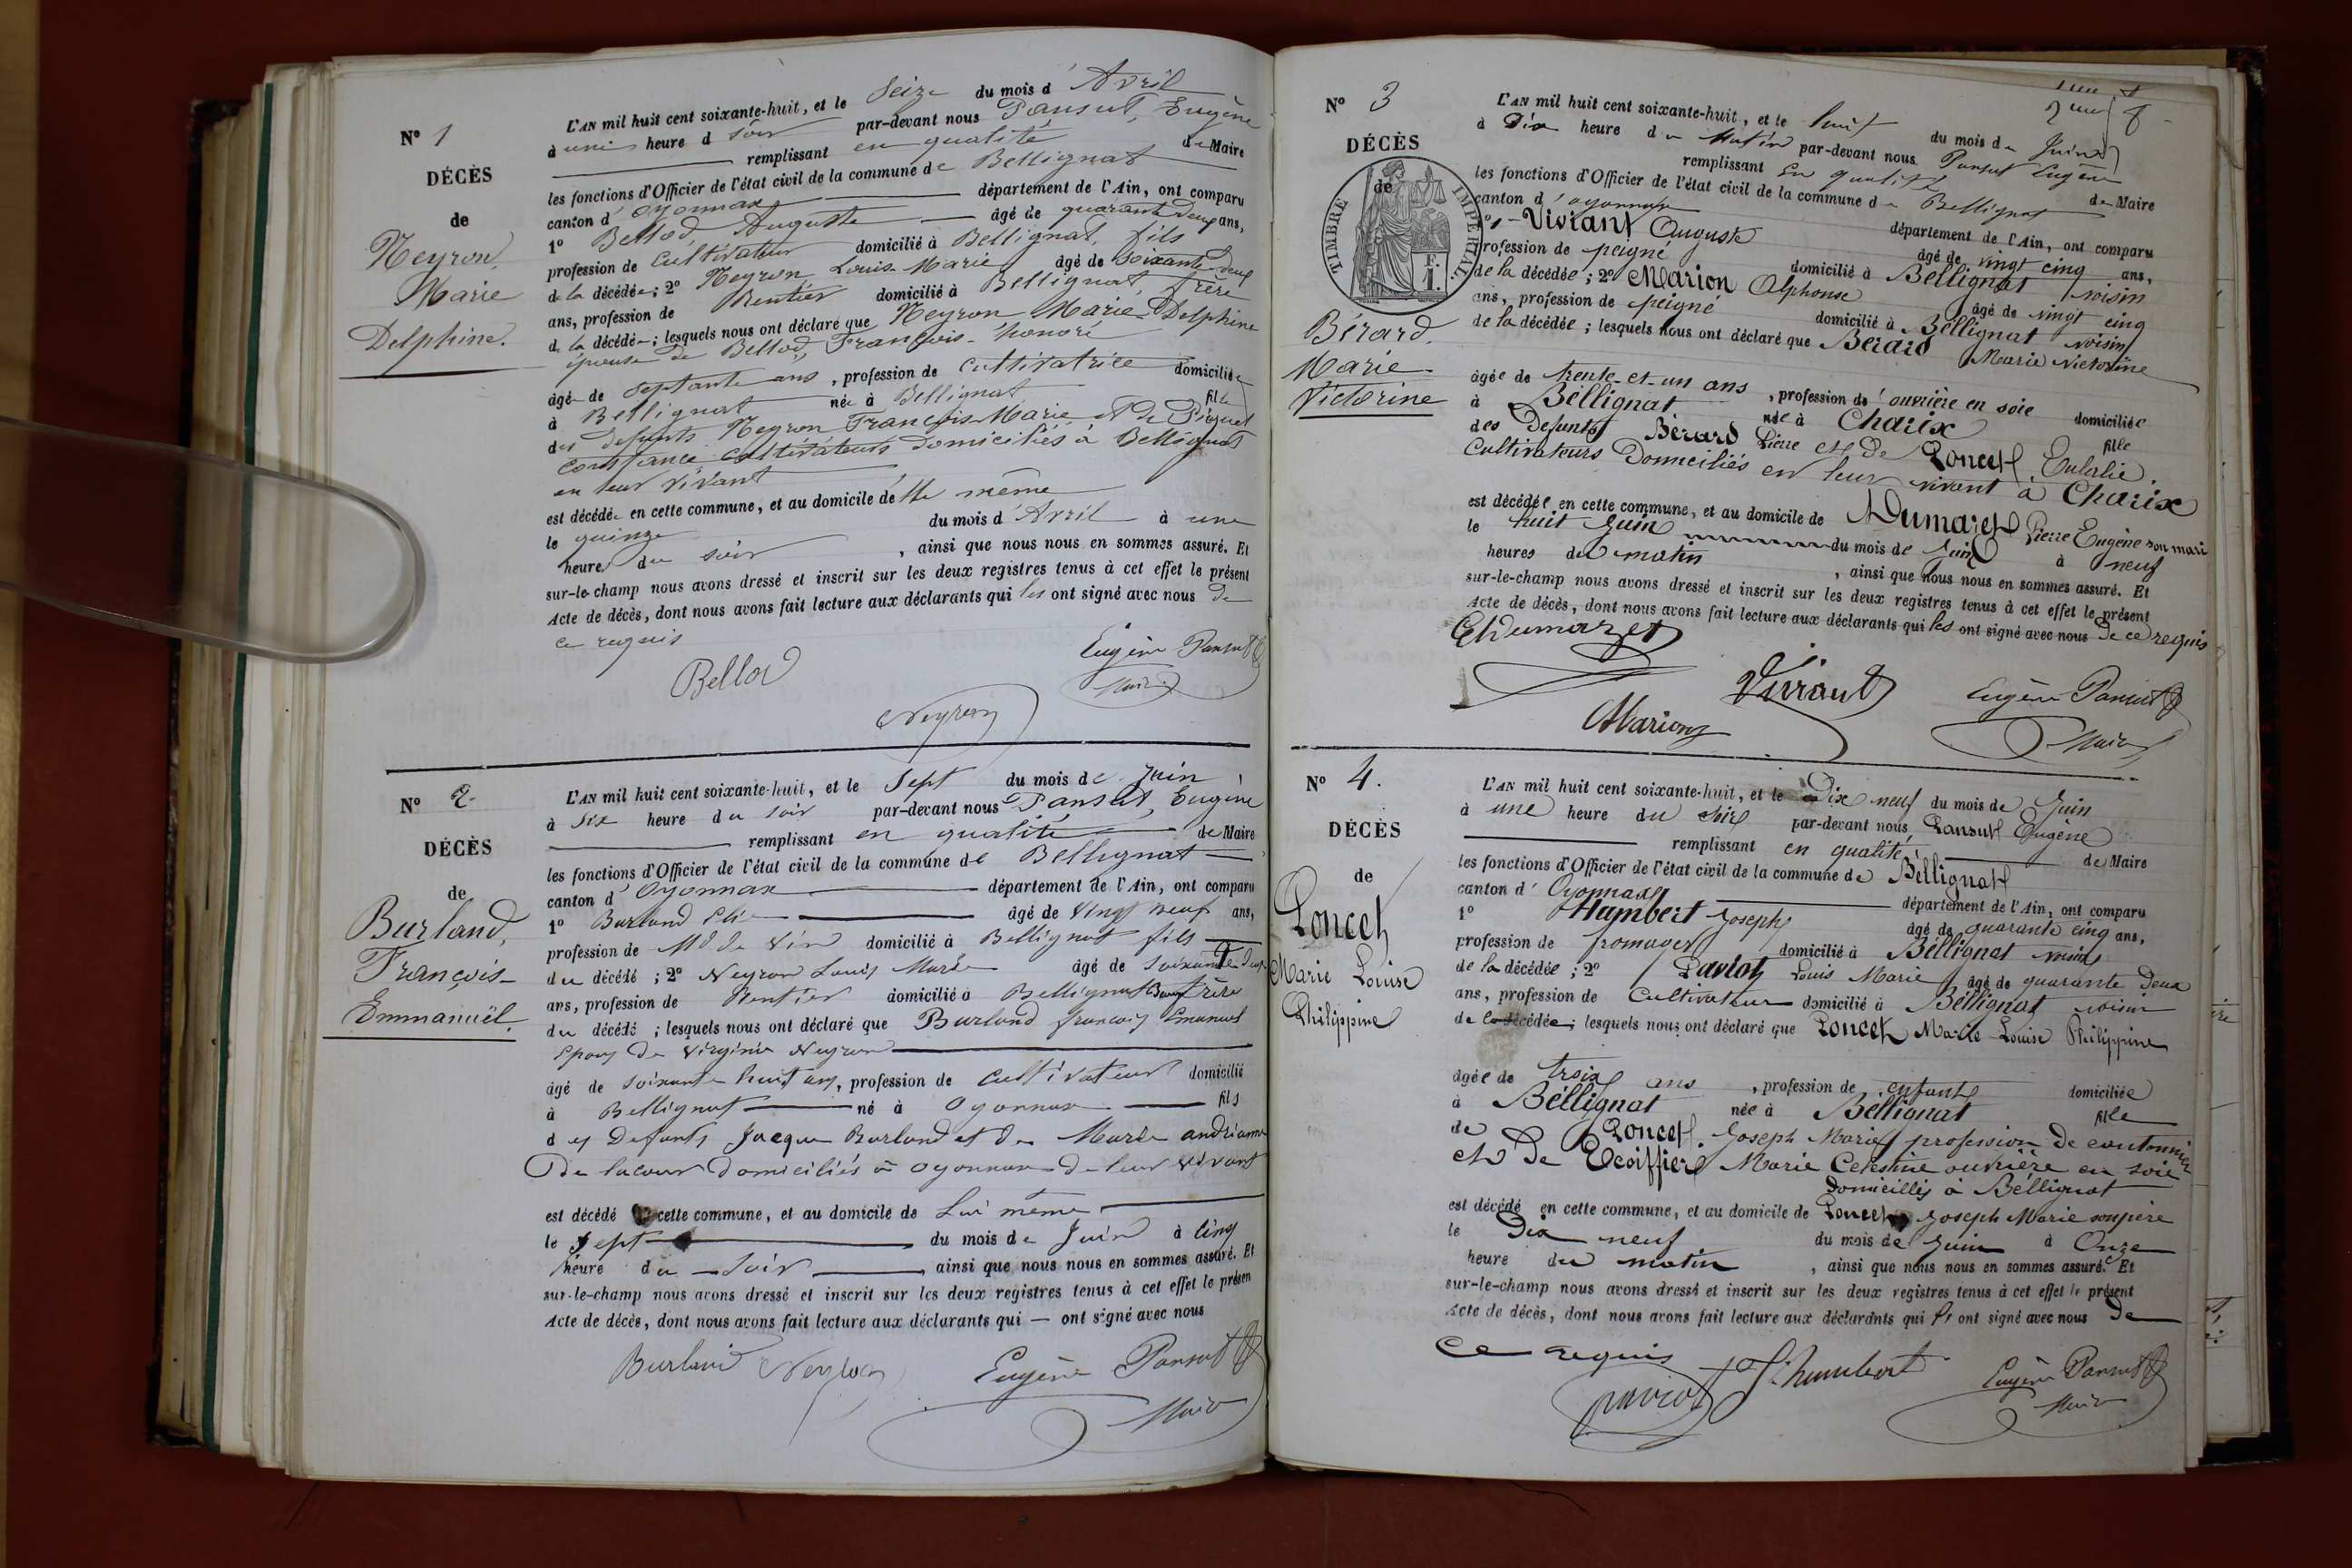 N° 1
DÉCÈS
de
Neyron
Marie
Delphine.
L'AN mil huit cent soixante-huit, et le Seize du mois d'Avril
à une heure d soir par-devant nous Pansut, Eugène
remplissant en qualité de Maire
les fonctions d'Officier de l'état civil de la commune de Bellignat
canton d'Oyonnax département de l'Ain, ont comparu
1° Bellod, Auguste âgé de quarante deux ans,
profession de Cultivateur domicilié à Bellignat, fils
de la décédée; 2° Neyron Louis-Marie âgé de soixante deux
ans, profession de Rentier domicilié à Bellignat, frère
de la décédée; lesquels nous ont déclaré que Neyron Marie-Delphine
épouse de Bellod, François-honoré
âgée de septante ans, profession de Cultivatrice domiciliée
à Bellignat née à Bellignat fille
des defunts Neyron François-Marie et de Piquet
Constance cultivateurs domiciliés à Bellignat
en leur vivant
est décédée en cette commune, et au domicile de elle même
le quinze du mois d'Avril à une
heure du soir, ainsi que nous nous en sommes assuré. Et
sur-le-champ nous avons dressé et inscrit sur les deux registres tenus à cet effet le présent
Acte de décès, dont nous avons fait lecture aux déclarants qui les ont signé avec nous de
ce requis
Bellod
Neyron
Eugène Pansut
Maire
N° 2
DÉCÈS
de
Burland,
François-
Emmanuël.
L'AN mil huit cent soixante-huit, et le Sept du mois de Juin
à Six heure du soir par-devant nous Pansut, Eugène
remplissant en qualité de Maire
les fonctions d'Officier de l'état civil de la commune de Bellignat
canton d'Oyonnax département de l'Ain, ont comparu
1° Burland Elie âgé de Vingt neuf ans,
profession de Md de vin domicilié à Bellignat fils
du décédé; 2° Neyron Louis Marie âgé de soixante deux
ans, profession de Rentier domicilié à Bellignat Beau frère
du décédé; lesquels nous ont déclaré que Burland françois Emanuel
Epoux de Virginie Neyron
âgé de soixante huit ans, profession de Cultivateur domicilié
à Bellignat né à Oyonnax fils
des Defunts Jacque Burland et de Marie andrianne
De lacour Domiciliés à oyonnax de leur vivant
est décédé en cette commune, et au domicile de Lui même
le Sept du mois de Juin à Cinq
heure du soir, ainsi que nous nous en sommes assuré. Et
sur-le-champ nous avons dressé et inscrit sur les deux registres tenus à cet effet le présen
Acte de décès, dont nous avons fait lecture aux déclarants qui — ont signé avec nous
Burland Neyron
Eugène Pansut
Maire
N° 3
DÉCÈS
de
TIMBRE IMPÉRIAL
F. 1.
Bérard.
Marie-
Victorine
L'AN mil huit cent soixante-huit, et le huit du mois de Juin
à Dix heure du Matin par-devant nous Pansut Eugène
remplissant En qualité de Maire
les fonctions d'Officier de l'état civil de la commune de Bellignat
canton d'oyonnax département de l'Ain, ont comparu
1° Viviant Auguste âgé de vingt cinq ans,
profession de peigné domicilié à Bellignat voisin
de la décédée; 2° Marion Alphonse âgé de vingt cinq
ans, profession de peigné domicilié à Bellignat voisin
de la décédée; lesquels nous ont déclaré que Berard Marie Victorine
âgée de trente-et-un ans, profession d'ouvrière en soie domiciliée
à Bellignat née à Charix fille
des Defunts Bérard Pierre et de Poncet Eulalie.
Cultivateurs Domiciliés en leur vivant à Charix
est décédée en cette commune, et au domicile de Dumarest Pierre Eugène son mari
le huit Juin du mois de Juin à neuf
heures du matin, ainsi que nous nous en sommes assuré. Et
sur-le-champ nous avons dressé et inscrit sur les deux registres tenus à cet effet le présent
Acte de décès, dont nous avons fait lecture aux déclarants qui les ont signé avec nous de ce requis
Marion
Eugène Pansut
Maire
N° 4.
DÉCÈS
de
Poncet
Marie Louise
Philippine
L'AN mil huit cent soixante-huit, et le Dix neuf du mois de Juin
à une heure du Soir par-devant nous Pansut Eugène
remplissant en qualité de Maire
les fonctions d'Officier de l'état civil de la commune de Béllignat
canton d'Oyonnax département de l'Ain, ont comparu
1° Humbert Joseph âgé de quarante cinq ans,
profession de fromager domicilié à Béllignat voisin
de la décédée; 2° Paviot Louis Marie âgé de quarante deux
ans, profession de Cultivateur domicilié à Béllignat voisin
de la décédée; lesquels nous ont déclaré que Poncet Marie Louise Philippine
âgée de trois ans, profession de enfant domiciliée
à Béllignat née à Béllignat fille
de Poncet Joseph Marie profession de cantonnier
et de Ecoiffier Marie Celestine ouvrière en soie
Domicillés à Béllignat
est décédé en cette commune, et au domicile de Poncet Joseph Marie son père
le Dix neuf du mois de Juin à Onze
heure du matin, ainsi que nous nous en sommes assuré. Et
sur-le-champ nous avons dressé et inscrit sur les deux registres tenus à cet effet le présent
Acte de décès, dont nous avons fait lecture aux déclarants qui ont signé avec nous De
Ce requis
paviot J. humbert
Eugène Pansut
Maire